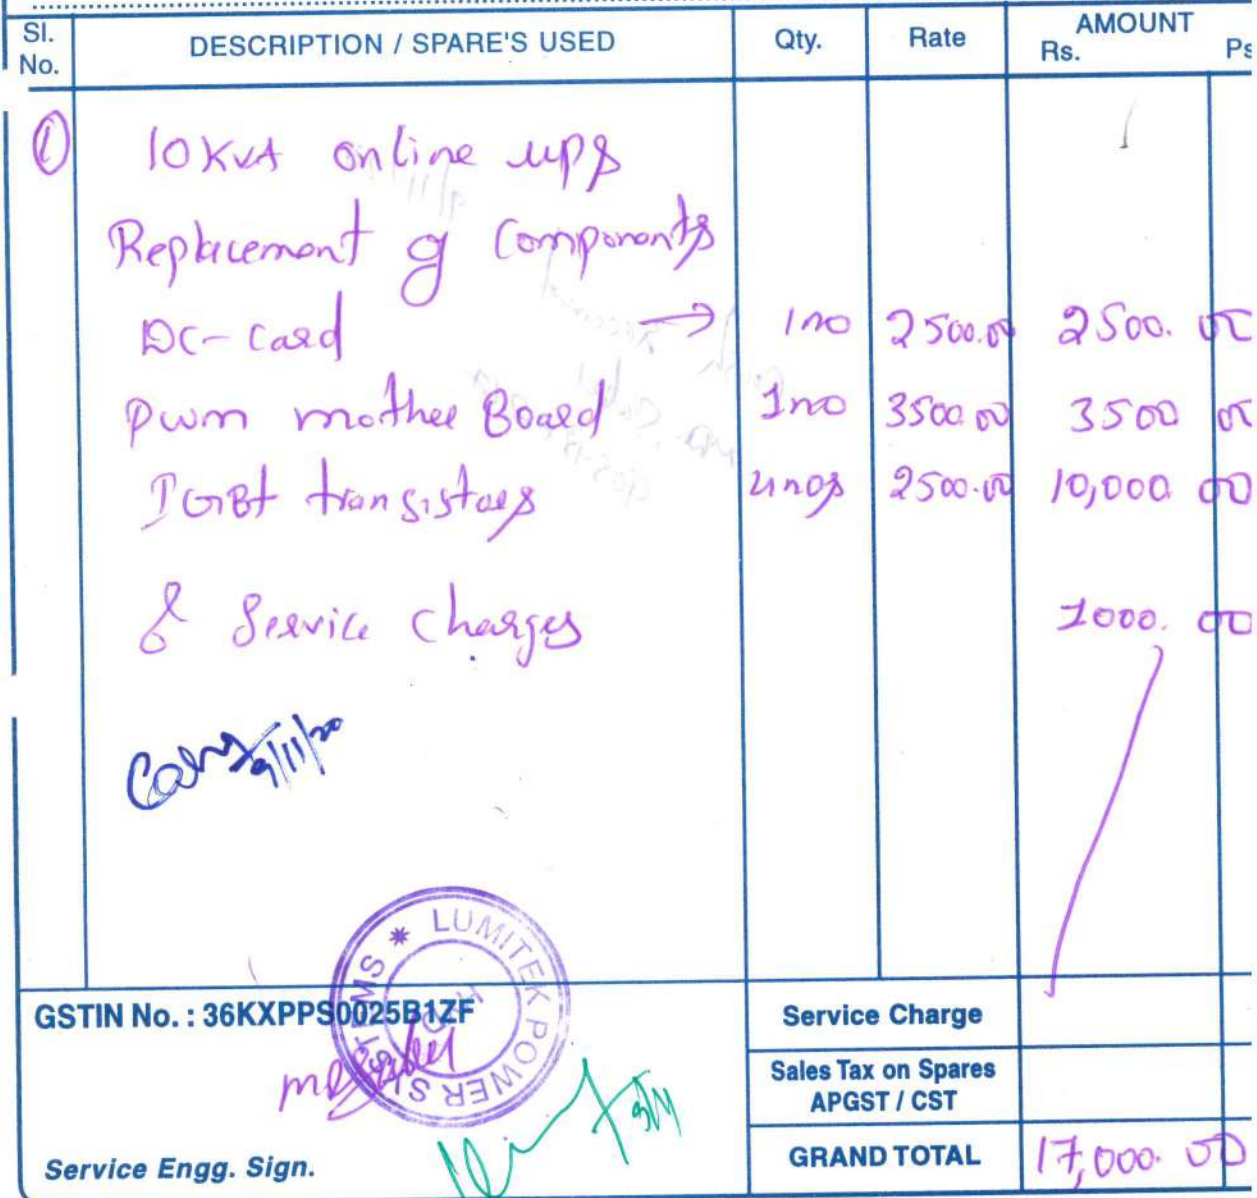 Sl. No. DESCRIPTION / SPARE'S USED Qty. Rate AMOUNT Rs. Ps
① 10 KVA online ups
Replacement of Components
DC-Card → 1no 2500.00 2500. 00
Pwm mother Board 1no 3500.00 3500 00
IGBT transistors 4nos 2500.00 10,000 00
& Service Charges 1000. 00
9/11/20
LUMITEK POWER SYSTEMS
HYD
GSTIN No. : 36KXPPS0025B1ZF Service Charge
Sales Tax on Spares
APGST / CST
Service Engg. Sign. GRAND TOTAL 17,000. 00